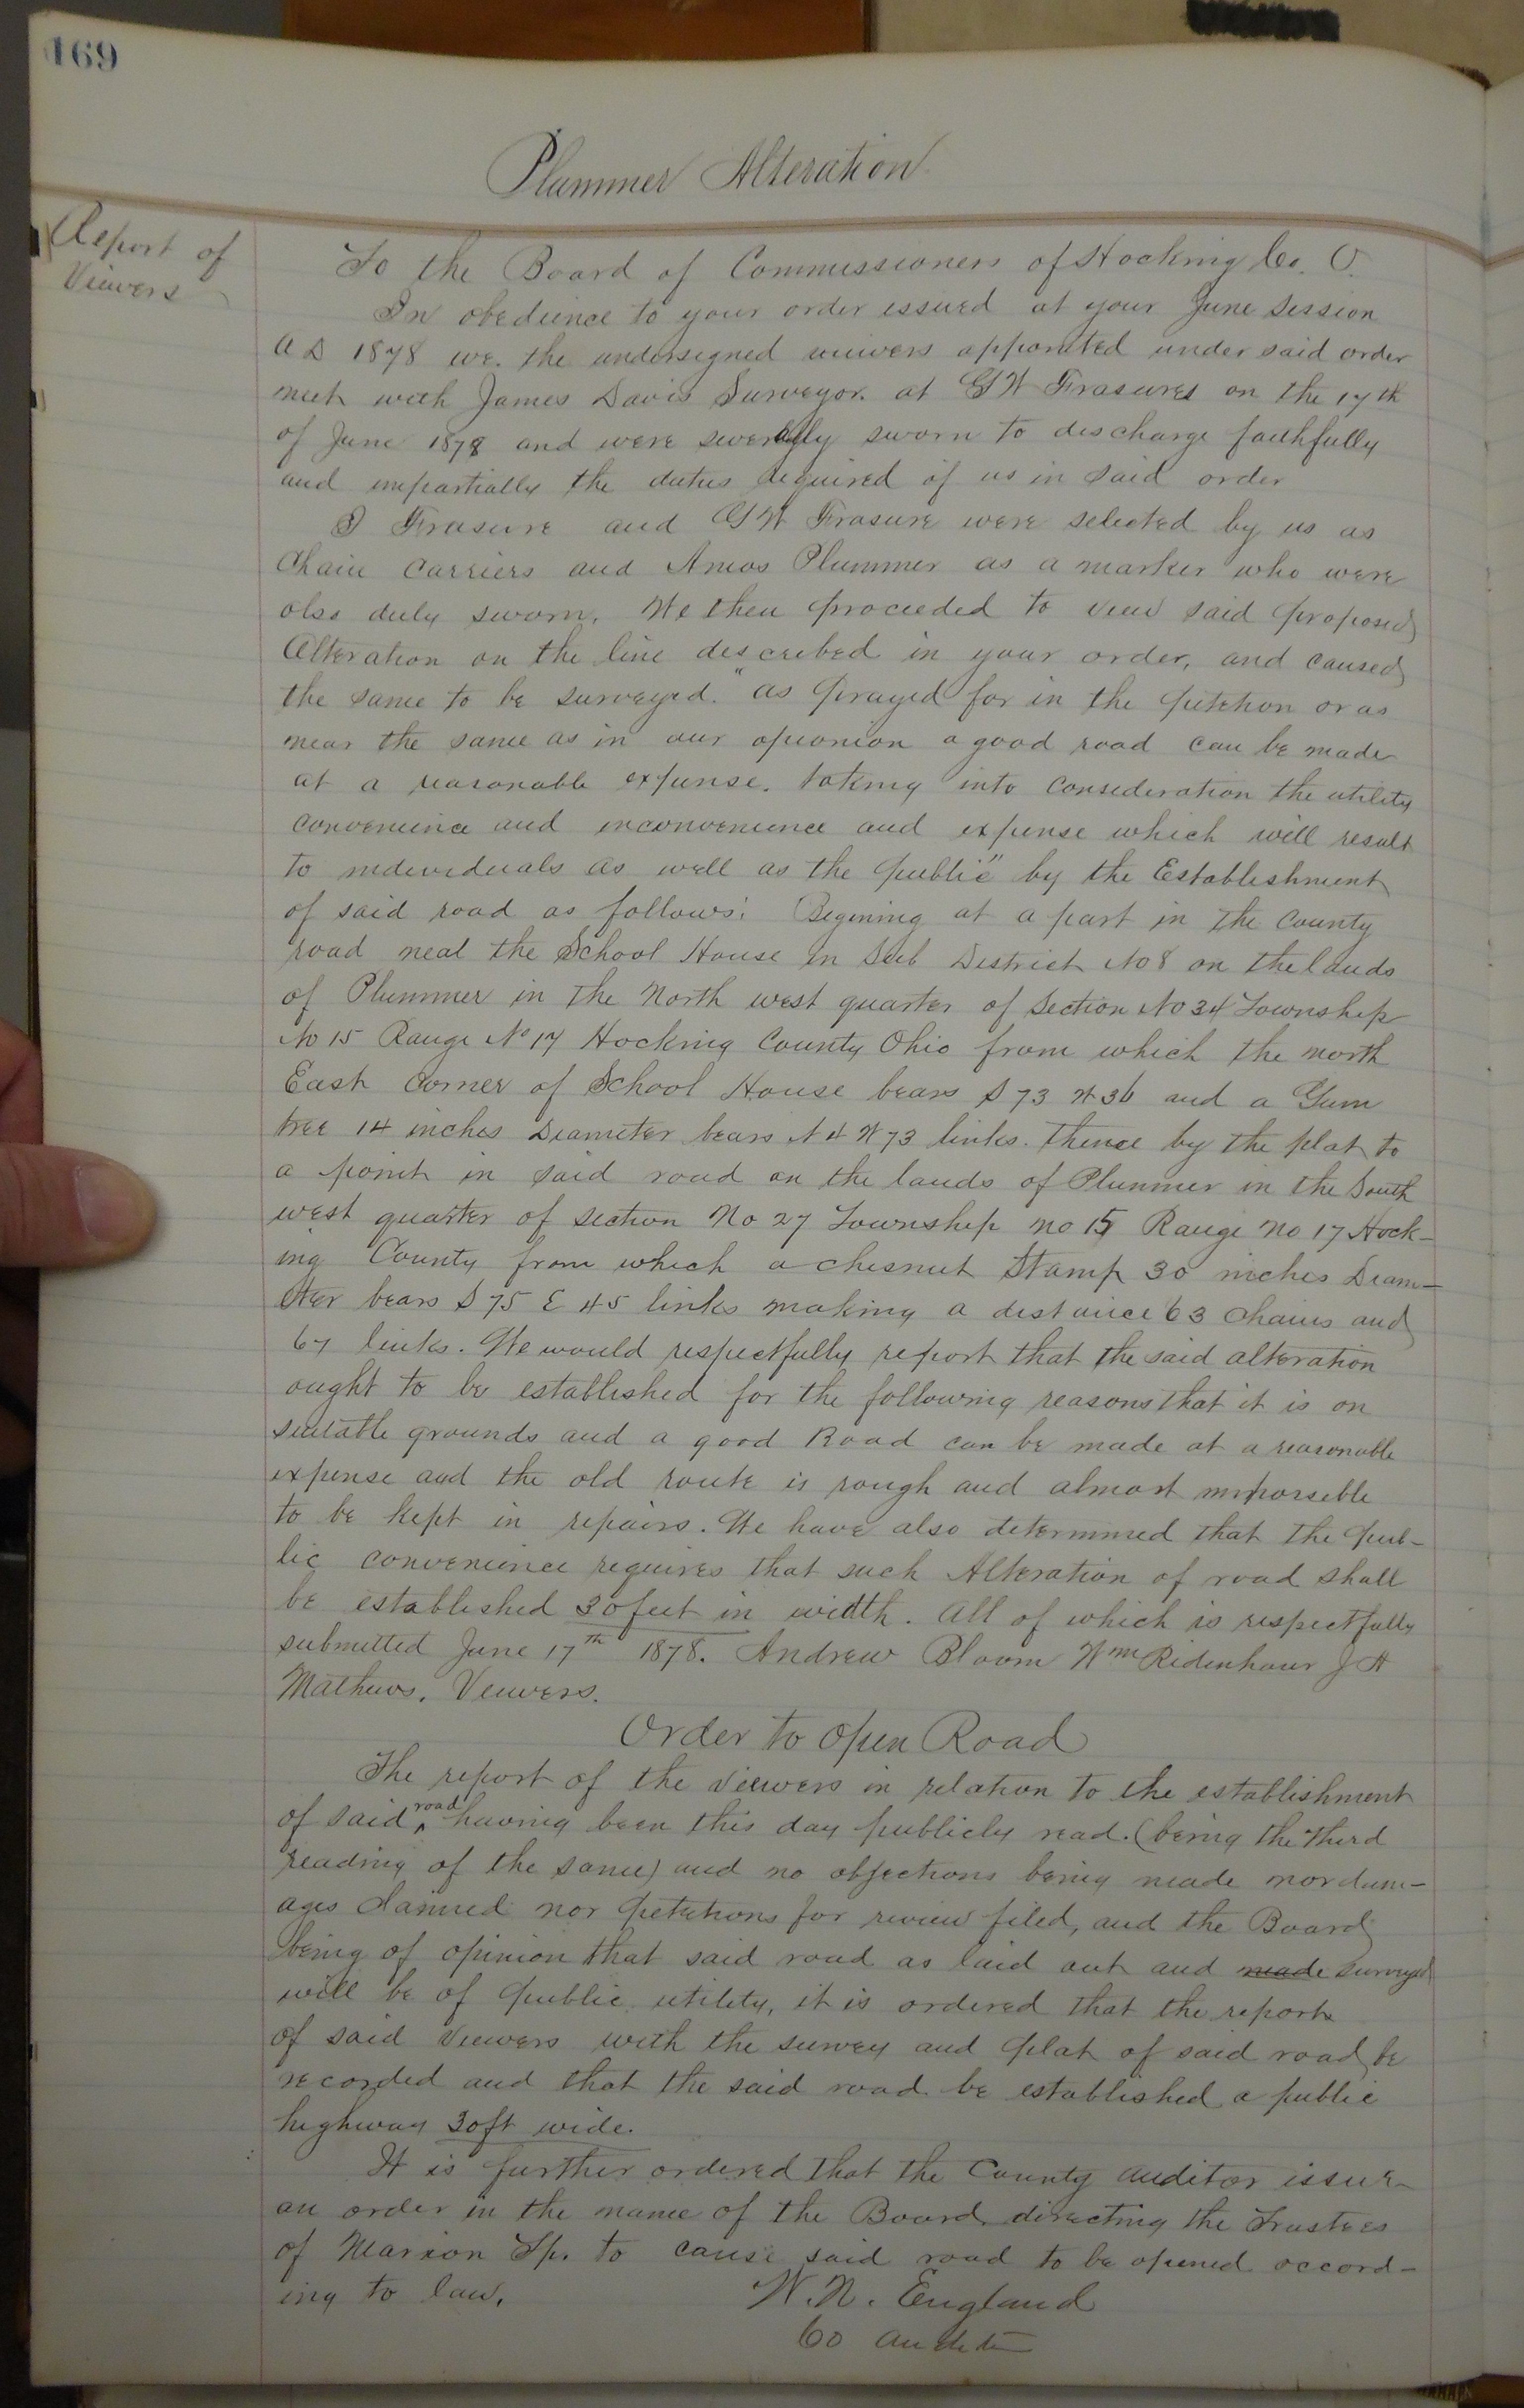 169
Plummer Alteration
Report of
Viewers
To the Board of Commissioners of Hocking Co. O.
In obedience to your order issued at your June Session
A D 1878 we. the undersigned veiwers apponited under said order
meet with James Davis Surveyor. at G W Frasures on the 17th
of June 1878 and were severally sworn to discharge faithfully
and impartially the duties required of us in said order
I Frasure and G W Frasure were selected by us as
Chain Carriers and Amos Plummer as a marker who were
also duly sworn. We then proceeded to view said proposed
Alteration on the line described in your order, and caused
the same to be surveyed. "as prayed for in the petition or as
near the same as in our opionion a good road can be made
at a reasonable expense. taking into consideration the utility
convenience and inconvenience and expense which will result
to individuals as well as the public" by the Establishment
of said road as follows: Begining at a part in the County
road neal the School House in Sub District No 8 on the lands
of Plummer in the North west quarter of Section No 34 Township
No 15 Range No 17 Hocking County Ohio from which the north
East Corner of School House bears S 73 W 36 and a Gum
tree 14 inches Diameter bears N 4 W 73 links. thence by the plat to
a point in said road on the lands of Plummer in the South
west quarter of section No 27 Township no 15 Range no 17 Hock-
ing County from which a chesnut Stamp 30 inches Diam-
eter bears S 75 E 45 links making a distance 63 Chains and
67 links. We would respectfully report that the said alteration
ought to be established for the following reasons that it is on
suitable grounds and a good Road can be made at a reasonable
expense and the old route is rough and almost impossible
to be kept in repairs. We have also determined that the pub-
lic convenience requires that such Alteration of road shall
be established 30 feet in width. All of which is respectfully
submitted June 17th 1878. Andrew Bloom Wm Ridenhour J H
Mathews. Veiwers.
Order to Open Road
The report of the Viewers in relation to the establishment
of said road having been this day publicly read. (being the third
reading of the same) and no objections being made nor dam-
ages claimed nor petitions for review filed, and the Board
being of opinion that said road as laid out and made surveyed
will be of public utility, it is ordered that the report
of said Viewers with the survey and plat of said road be
recorded and that the said road be established a public
highway 30 ft wide.
It is further ordered that the County Auditor issue
an order in the name of the Board directing the Trustees
of Marion Tp. to cause said road to be opened accord-
ing to law.
W. N. England
Co Auditor